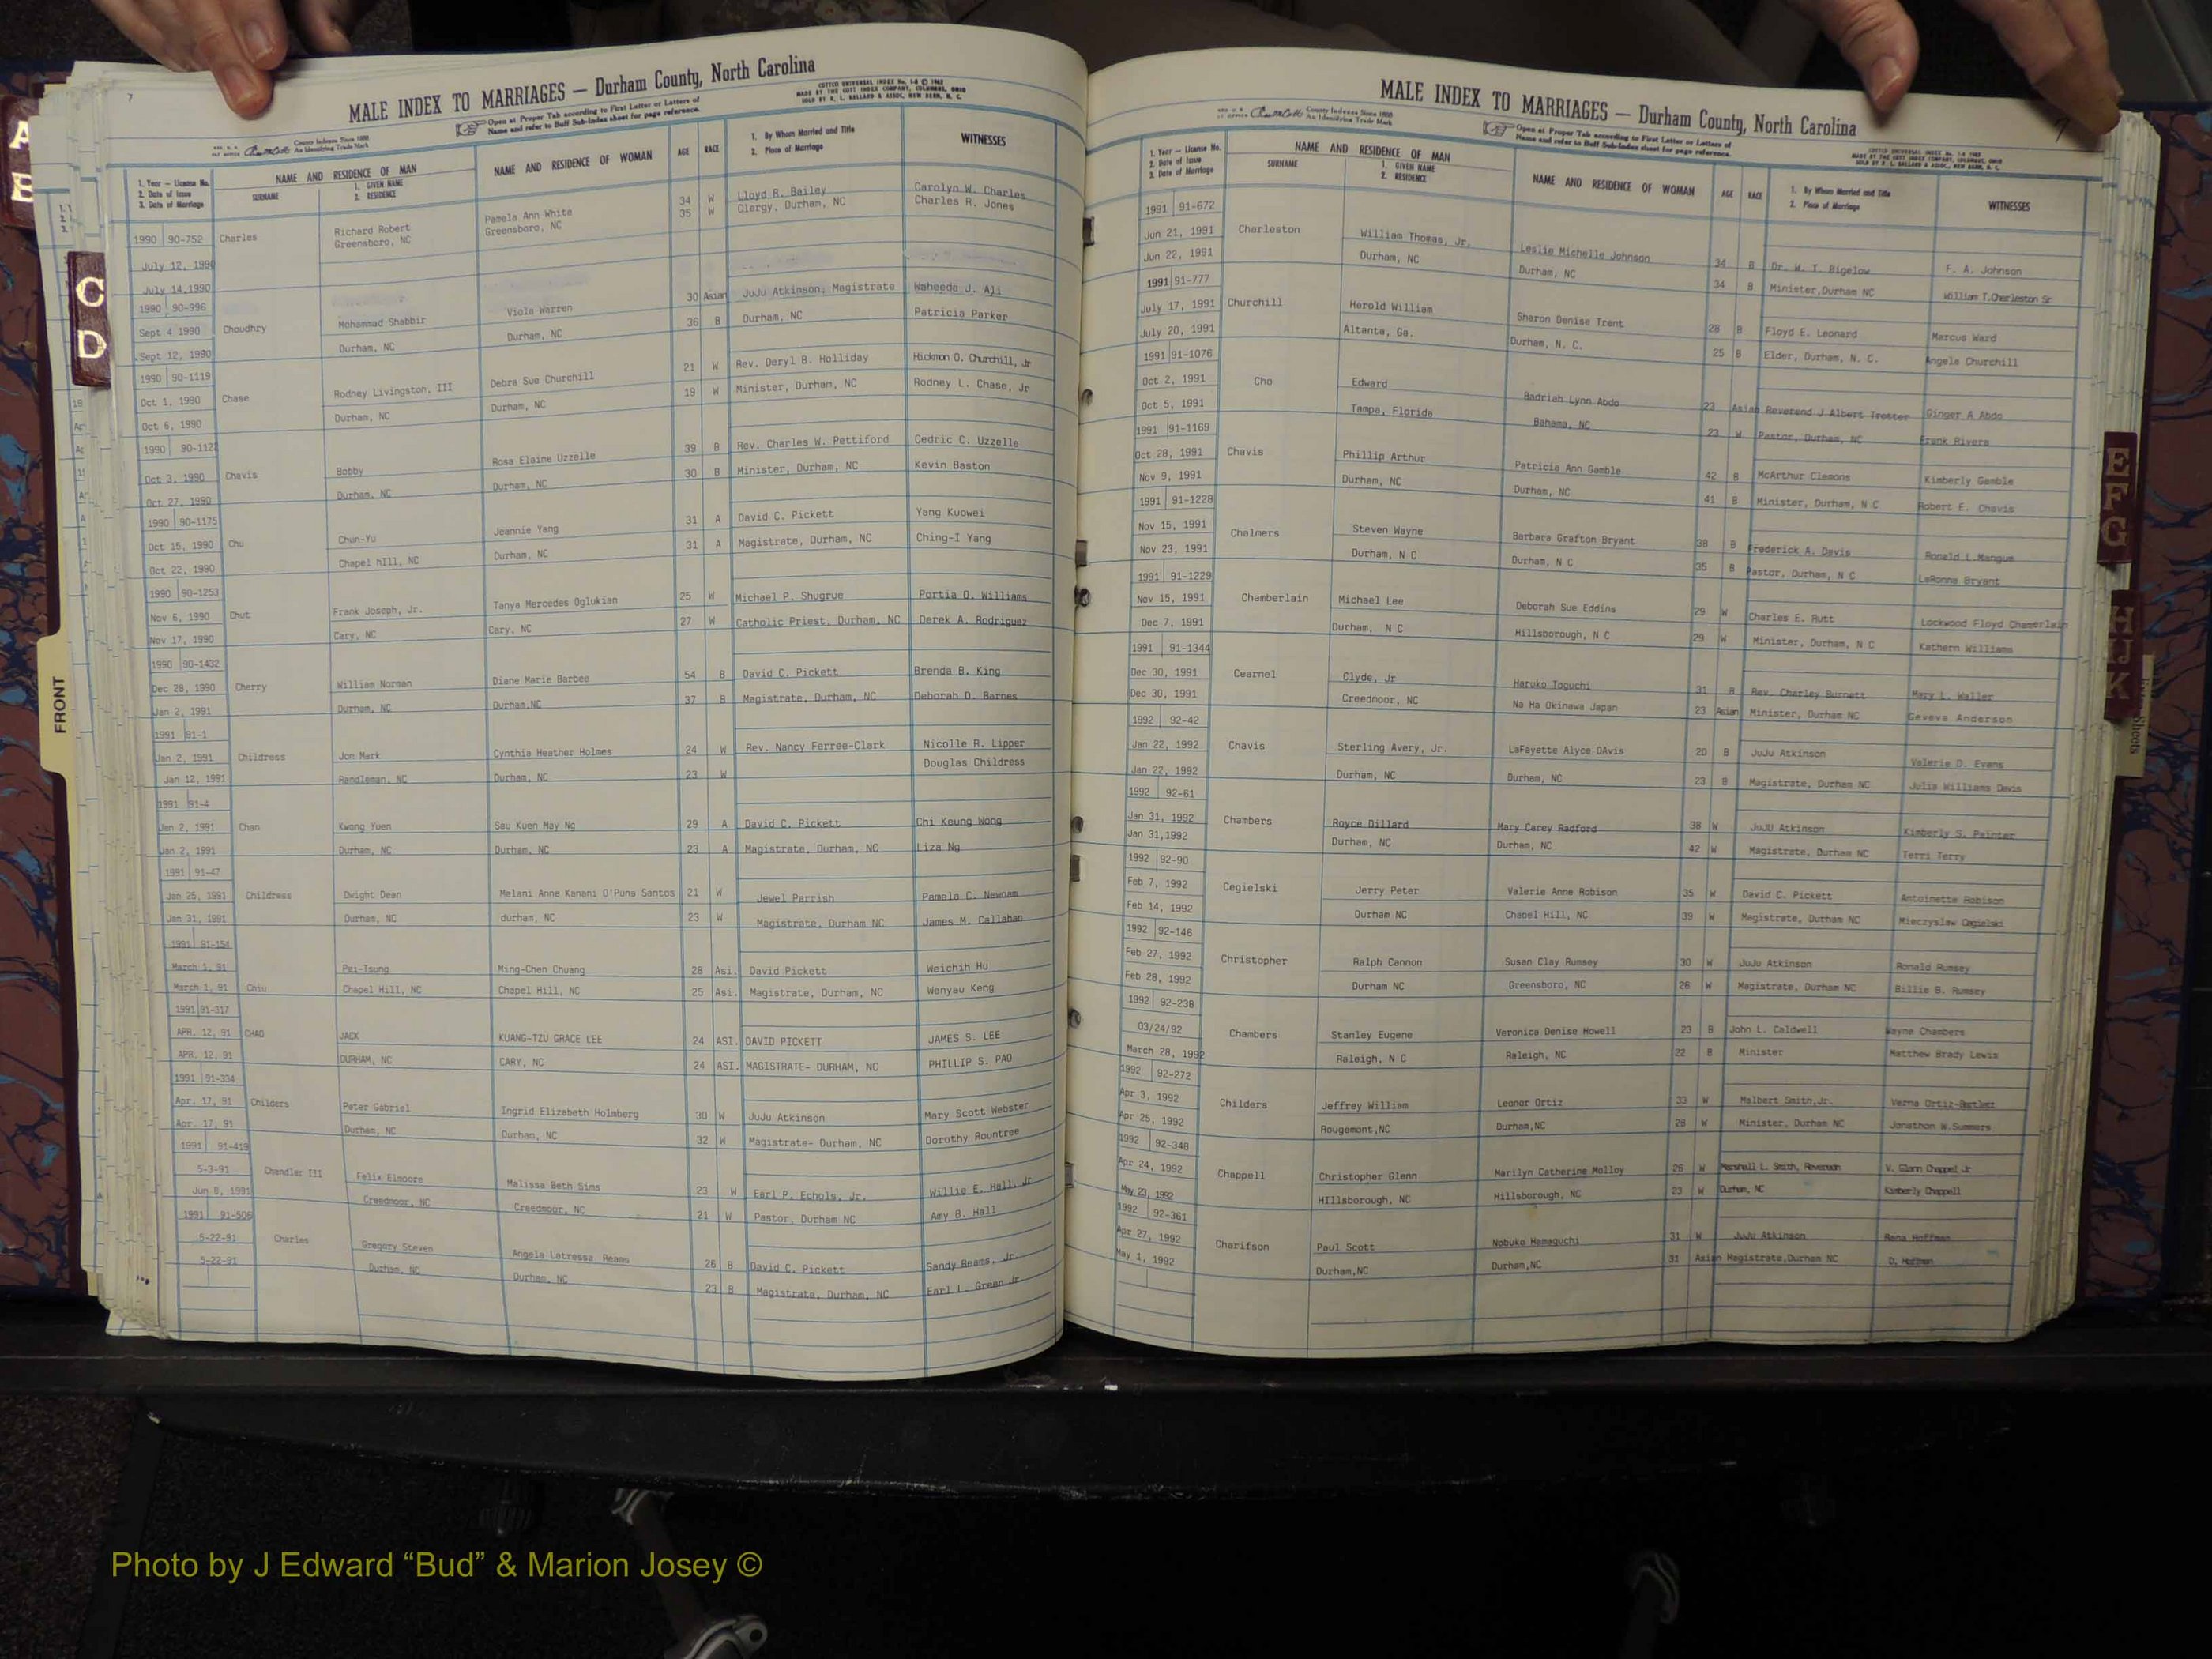 7
MALE INDEX TO MARRIAGES — Durham County, North Carolina
Open at Proper Tab according to First Letter or Letters of
Name and refer to Buff Sub-Index sheet for page reference.
County Indexes Since 1888
An Identifying Trade Mark
1. Year — License No. 2. Date of Issue 3. Date of Marriage
NAME AND RESIDENCE OF MAN
SURNAME 1. GIVEN NAME 2. RESIDENCE
NAME AND RESIDENCE OF WOMAN
AGE RACE
1. By Whom Married and Title
2. Place of Marriage
WITNESSES
1990 90-752 Charles Richard Robert Pamela Ann White 34 W Lloyd R. Bailey Carolyn W. Charles
July 12, 1990 Greensboro, NC Greensboro, NC 35 W Clergy, Durham, NC Charles R. Jones
July 14,1990
1990 90-996 Mohammad Shabbir Viola Warren 30 Asian JuJu Atkinson, Magistrate Waheeda J. Aji
Sept 4 1990 Choudhry Durham, NC Durham, NC 36 B Durham, NC Patricia Parker
Sept 12, 1990
1990 90-1119 Rodney Livingston, III Debra Sue Churchill 21 W Rev. Deryl B. Holliday Hickmon O. Churchill, Jr
Oct 1, 1990 Chase Durham, NC Durham, NC 19 W Minister, Durham, NC Rodney L. Chase, Jr
Oct 6, 1990
1990 90-1122 Bobby Rosa Elaine Uzzelle 39 B Rev. Charles W. Pettiford Cedric C. Uzzelle
Oct 3, 1990 Chavis Durham, NC Durham, NC 30 B Minister, Durham, NC Kevin Baston
Oct 27, 1990
1990 90-1175 Chun-Yu Jeannie Yang 31 A David C. Pickett Yang Kuowei
Oct 15, 1990 Chu Chapel hIll, NC Durham, NC 31 A Magistrate, Durham, NC Ching-I Yang
Oct 22, 1990
1990 90-1253 Frank Joseph, Jr. Tanya Mercedes Oglukian 25 W Michael P. Shugrue Portia O. Williams
Nov 6, 1990 Chut Cary, NC Cary, NC 27 W Catholic Priest, Durham, NC Derek A. Rodriguez
Nov 17, 1990
1990 90-1432 William Norman Diane Marie Barbee 54 B David C. Pickett Brenda B. King
Dec 28, 1990 Cherry Durham, NC Durham,NC 37 B Magistrate, Durham, NC Deborah D. Barnes
Jan 2, 1991
1991 91-1 Jon Mark Cynthia Heather Holmes 24 W Rev. Nancy Ferree-Clark Nicolle R. Lipper
Jan 2, 1991 Childress Randleman, NC Durham, NC 23 W Douglas Childress
Jan 12, 1991
1991 91-4
Jan 2, 1991 Chan Kwong Yuen Sau Kuen May Ng 29 A David C. Pickett Chi Keung Wong
Jan 2, 1991 Durham, NC Durham, NC 23 A Magistrate, Durham, NC Liza Ng
1991 91-47
Jan 25, 1991 Childress Dwight Dean Melani Anne Kanani O'Puna Santos 21 W Jewel Parrish Pamela C. Newnam
Jan 31, 1991 Durham, NC durham, NC 23 W Magistrate, Durham NC James M. Callahan
1991 91-154
March 1, 91 Pei-Tsung Ming-Chen Chuang 28 Asi. David Pickett Weichih Hu
March 1, 91 Chiu Chapel Hill, NC Chapel Hill, NC 25 Asi. Magistrate, Durham, NC Wenyau Keng
1991 91-317
APR. 12, 91 CHAO JACK KUANG-TZU GRACE LEE 24 ASI. DAVID PICKETT JAMES S. LEE
APR. 12, 91 DURHAM, NC CARY, NC 24 ASI. MAGISTRATE- DURHAM, NC PHILLIP S. PAO
1991 91-334
Apr. 17, 91 Childers Peter Gabriel Ingrid Elizabeth Holmberg 30 W JuJu Atkinson Mary Scott Webster
Apr. 17, 91 Durham, NC Durham, NC 32 W Magistrate- Durham, NC Dorothy Rountree
1991 91-419
5-3-91 Chandler III Felix Elmoore Malissa Beth Sims 23 W Earl P. Echols, Jr. Willie E. Hall, Jr
Jun 8, 1991 Creedmoor, NC Creedmoor, NC 21 W Pastor, Durham NC Amy B. Hall
1991 91-506
5-22-91 Charles Gregory Steven Angela Latressa Reams 26 B David C. Pickett Sandy Reams, Jr.
5-22-91 Durham, NC Durham, NC 23 B Magistrate, Durham, NC Earl L. Green Jr.
7
MALE INDEX TO MARRIAGES — Durham County, North Carolina
Open at Proper Tab according to First Letter or Letters of
Name and refer to Buff Sub-Index sheet for page reference.
County Indexes Since 1888
An Identifying Trade Mark
1. Year — License No. 2. Date of Issue 3. Date of Marriage
NAME AND RESIDENCE OF MAN
SURNAME 1. GIVEN NAME 2. RESIDENCE
NAME AND RESIDENCE OF WOMAN
AGE RACE
1. By Whom Married and Title
2. Place of Marriage
WITNESSES
1991 91-672
Jun 21, 1991 Charleston William Thomas, Jr. Leslie Michelle Johnson 34 B Dr. W. T. Bigelow F. A. Johnson
Jun 22, 1991 Durham, NC Durham, NC 34 B Minister,Durham NC William T.Charleston Sr
1991 91-777
July 17, 1991 Churchill Harold William Sharon Denise Trent 28 B Floyd E. Leonard Marcus Ward
July 20, 1991 Altanta, Ga. Durham, N. C. 25 B Elder, Durham, N. C. Angela Churchill
1991 91-1076
Oct 2, 1991 Cho Edward Badriah Lynn Abdo 23 Asian Reverend J Albert Trotter Ginger A Abdo
Oct 5, 1991 Tampa, Florida Bahama, NC 23 W Pastor, Durham, NC Frank Rivera
1991 91-1169
Oct 28, 1991 Chavis Phillip Arthur Patricia Ann Gamble 42 B McArthur Clemons Kimberly Gamble
Nov 9, 1991 Durham, NC Durham, NC 41 B Minister, Durham, N C Robert E. Chavis
1991 91-1228
Nov 15, 1991 Chalmers Steven Wayne Barbara Grafton Bryant 38 B Frederick A. Davis Ronald L Mangum
Nov 23, 1991 Durham, N C Durham, N C 35 B Pastor, Durham, N C LaRonna Bryant
1991 91-1229
Nov 15, 1991 Chamberlain Michael Lee Deborah Sue Eddins 29 W Charles E. Rutt Lockwood Floyd Chamerlain
Dec 7, 1991 Durham, N C Hillsborough, N C 29 W Minister, Durham, N C Kathern Williams
1991 91-1344
Dec 30, 1991 Cearnel Clyde, Jr Haruko Toguchi 31 B Rev. Charley Burnett Mary L. Waller
Dec 30, 1991 Creedmoor, NC Na Ha Okinawa Japan 23 Asian Minister, Durham NC Geveva Anderson
1992 92-42
Jan 22, 1992 Chavis Sterling Avery, Jr. LaFayette Alyce DAvis 20 B JuJu Atkinson Valerie D. Evans
Jan 22, 1992 Durham, NC Durham, NC 23 B Magistrate, Durham NC Julia Williams Davis
1992 92-61
Jan 31, 1992 Chambers Royce Dillard Mary Carey Radford 38 W JuJU Atkinson Kimberly S. Painter
Jan 31,1992 Durham, NC Durham, NC 42 W Magistrate, Durham NC Terri Terry
1992 92-90
Feb 7, 1992 Cegielski Jerry Peter Valerie Anne Robison 35 W David C. Pickett Antoinette Robison
Feb 14, 1992 Durham NC Chapel Hill, NC 39 W Magistrate, Durham NC Mieczyslaw Cegielski
1992 92-146
Feb 27, 1992 Christopher Ralph Cannon Susan Clay Rumsey 30 W JuJu Atkinson Ronald Rumsey
Feb 28, 1992 Durham NC Greensboro, NC 26 W Magistrate, Durham NC Billie B. Rumsey
1992 92-238
03/24/92 Chambers Stanley Eugene Veronica Denise Howell 23 B John L. Caldwell Wayne Chambers
March 28, 1992 Raleigh, N C Raleigh, NC 22 B Minister Matthew Brady Lewis
1992 92-272
Apr 3, 1992 Childers Jeffrey William Leonor Ortiz 33 W Malbert Smith,Jr. Verna Ortiz-Bartlett
Apr 25, 1992 Rougemont,NC Durham,NC 28 W Minister, Durham NC Jonathon W.Summers
1992 92-348
Apr 24, 1992 Chappell Christopher Glenn Marilyn Catherine Molloy 26 W Marshall L. Smith, Reverend V. Glenn Chappel Jr
May 23, 1992 HIllsborough, NC Hillsborough, NC 23 W Durham, NC Kimberly Chappell
1992 92-361
Apr 27, 1992 Charifson Paul Scott Nobuko Hamaguchi 31 W JuJu Atkinson Rana Hoffman
May 1, 1992 Durham,NC Durham,NC 31 Asian Magistrate,Durham NC D. Hoffman
A
B
C
D
E
F
G
H
I
J
K
FRONT
Photo by J Edward “Bud” & Marion Josey ©